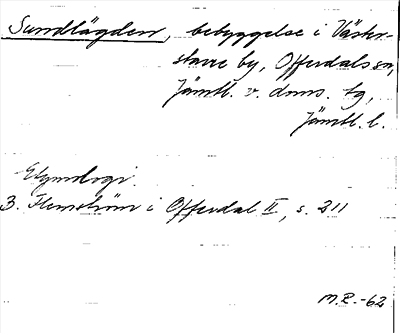 Sundlägden, bebyggelse i Väster-
stavre by, Offerdals sn,
Jämtl. v. doms. tg,
Jämtl. l.
Etymologi.
B. Flemström i Offerdal II, s. 211
M.R.-62